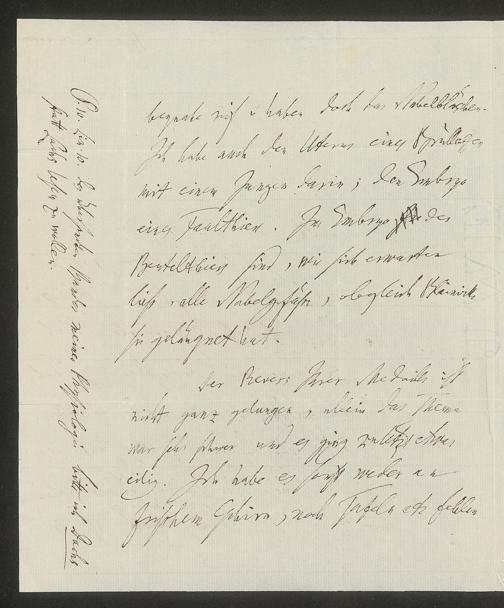 begnabe sich u haben doch das Nabelbläschen.
Ich habe auch den Uterus eines Brüllaffen
mit einem Jungen darin; den Embryo
eines Faulthiers. Im Embryo des
Beutelthiers sind, wie sich erwarten
ließ, alle Nabelgefäße, obgleich
sie geläugnet hat.
Der Revers Ihrer Medaille ist
nicht ganz gelungen, allein das Thema
war sehr schwer und es ging zuletzt etwas
eilig. Ich habe es sonst weder an
frischem Gehirn, noch Tafeln etc fehlen
des Bandes meiner Physiologie bitte ich Dachs
statt Lachs lesen zu wollen.